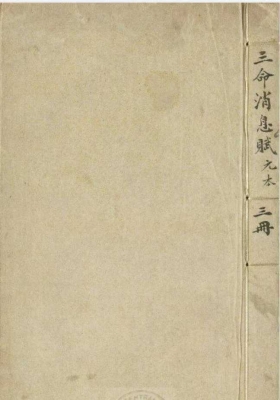 三命消息賦 元本
三冊